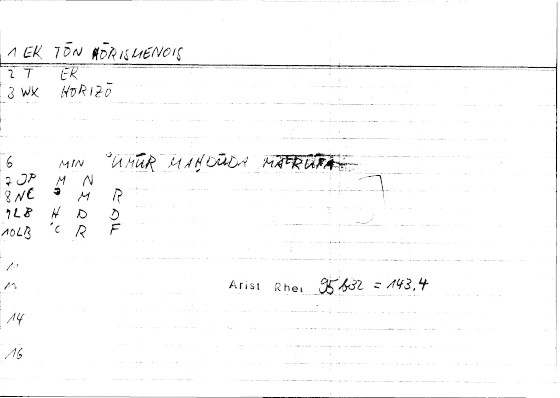 1 EK TŌN HŌRISMENOIS
2 T EK
3 WX HORIZŌ
6 MIN ʾUMŪR MAḤDŪDA MAʿRŪFA
7 JP M N
8 NC ʾ M R
9 LB Ḥ D D
10 LB ʿ R F
11
12 Arist Rhet 95b32 = 143,4
14
16